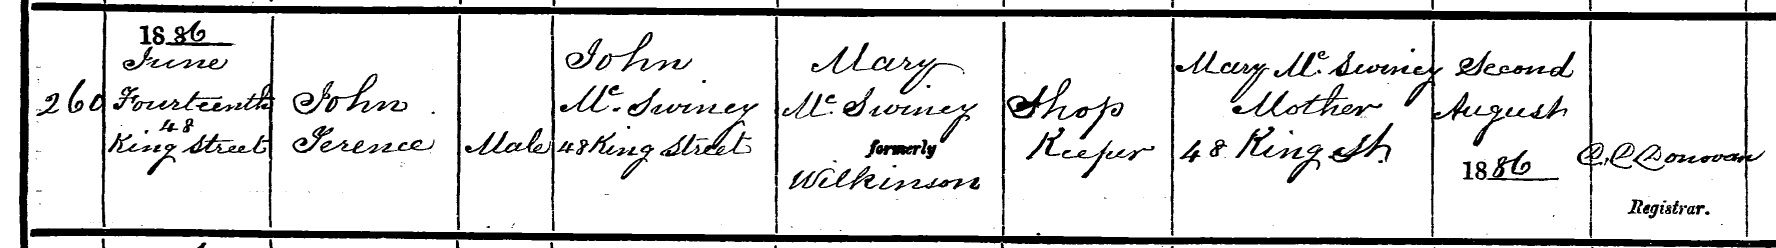 260
1886
June
Fourteenth
48
King Street
John
Terence
Male
John
Mc. Swiney
48 King Street
Mary
Mc. Swiney
formerly
Wilkinson
Shop
Keeper
Mary Mc. Swiney
Mother
48 King St.
Second
August
1886
C. C. Donovan
Registrar.